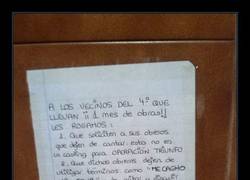 A LOS VECINOS DEL 4º QUE
LLEVAN ¡¡ 1 mes DE OBRAS!!
LES ROGAMOS:
1. Que soliciten a sus obreros
que dejen de cantar: esto no es
un casting para OPERACIÓN TRIUNFO
2. Que dichos obreros dejen de
utilizar términos como "ME CAGHO